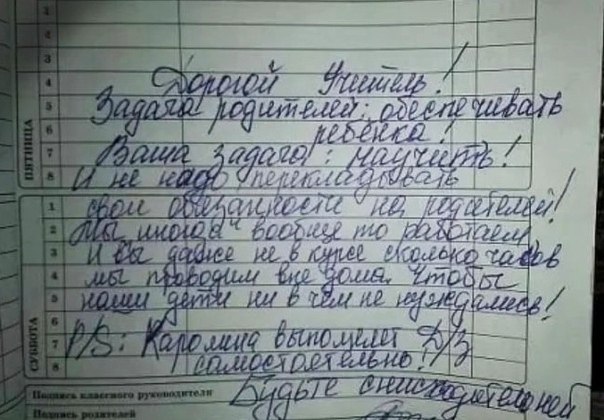 3
1
2
3
4
5
6
7
8
ПЯТНИЦА
Дорогой Учитель!
Задача родителей: обеспечивать
ребёнка!
Ваша задача: научить!
И не надо перекладывать
1
2
3
4
5
6
7
8
СУББОТА
свои обязанности на родателей!
Мы иногда вообще то работаем
И вы даже не в курсе сколько часов
мы проводим вне дома. Чтобы
наши дети ни в чем не нуждались!
P/S: Каролина выполняет Д/З
самостоятельно!
Подпись классного руководителя
Будьте снисходительней
Подпись родителей